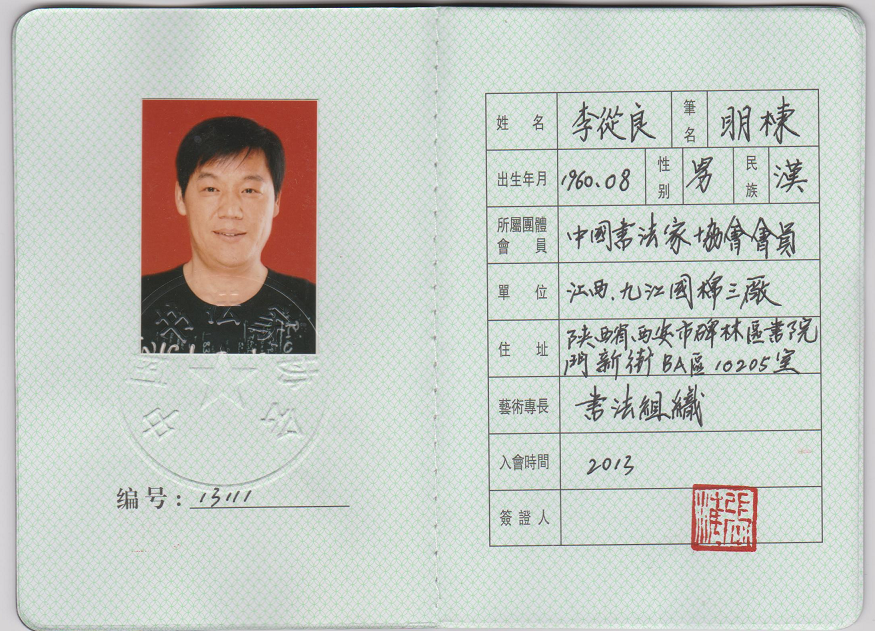 编号：13111
姓名 李從良 筆名 明棟
出生年月 1960.08 性别 男 民族 漢
所屬團體會員 中國書法家協會會員
單位 江西.九江國棉三廠
住址 陕西省西安市碑林區書院
門新街BA區10205室
藝術專長 書法組織
入會時間 2013
簽證人